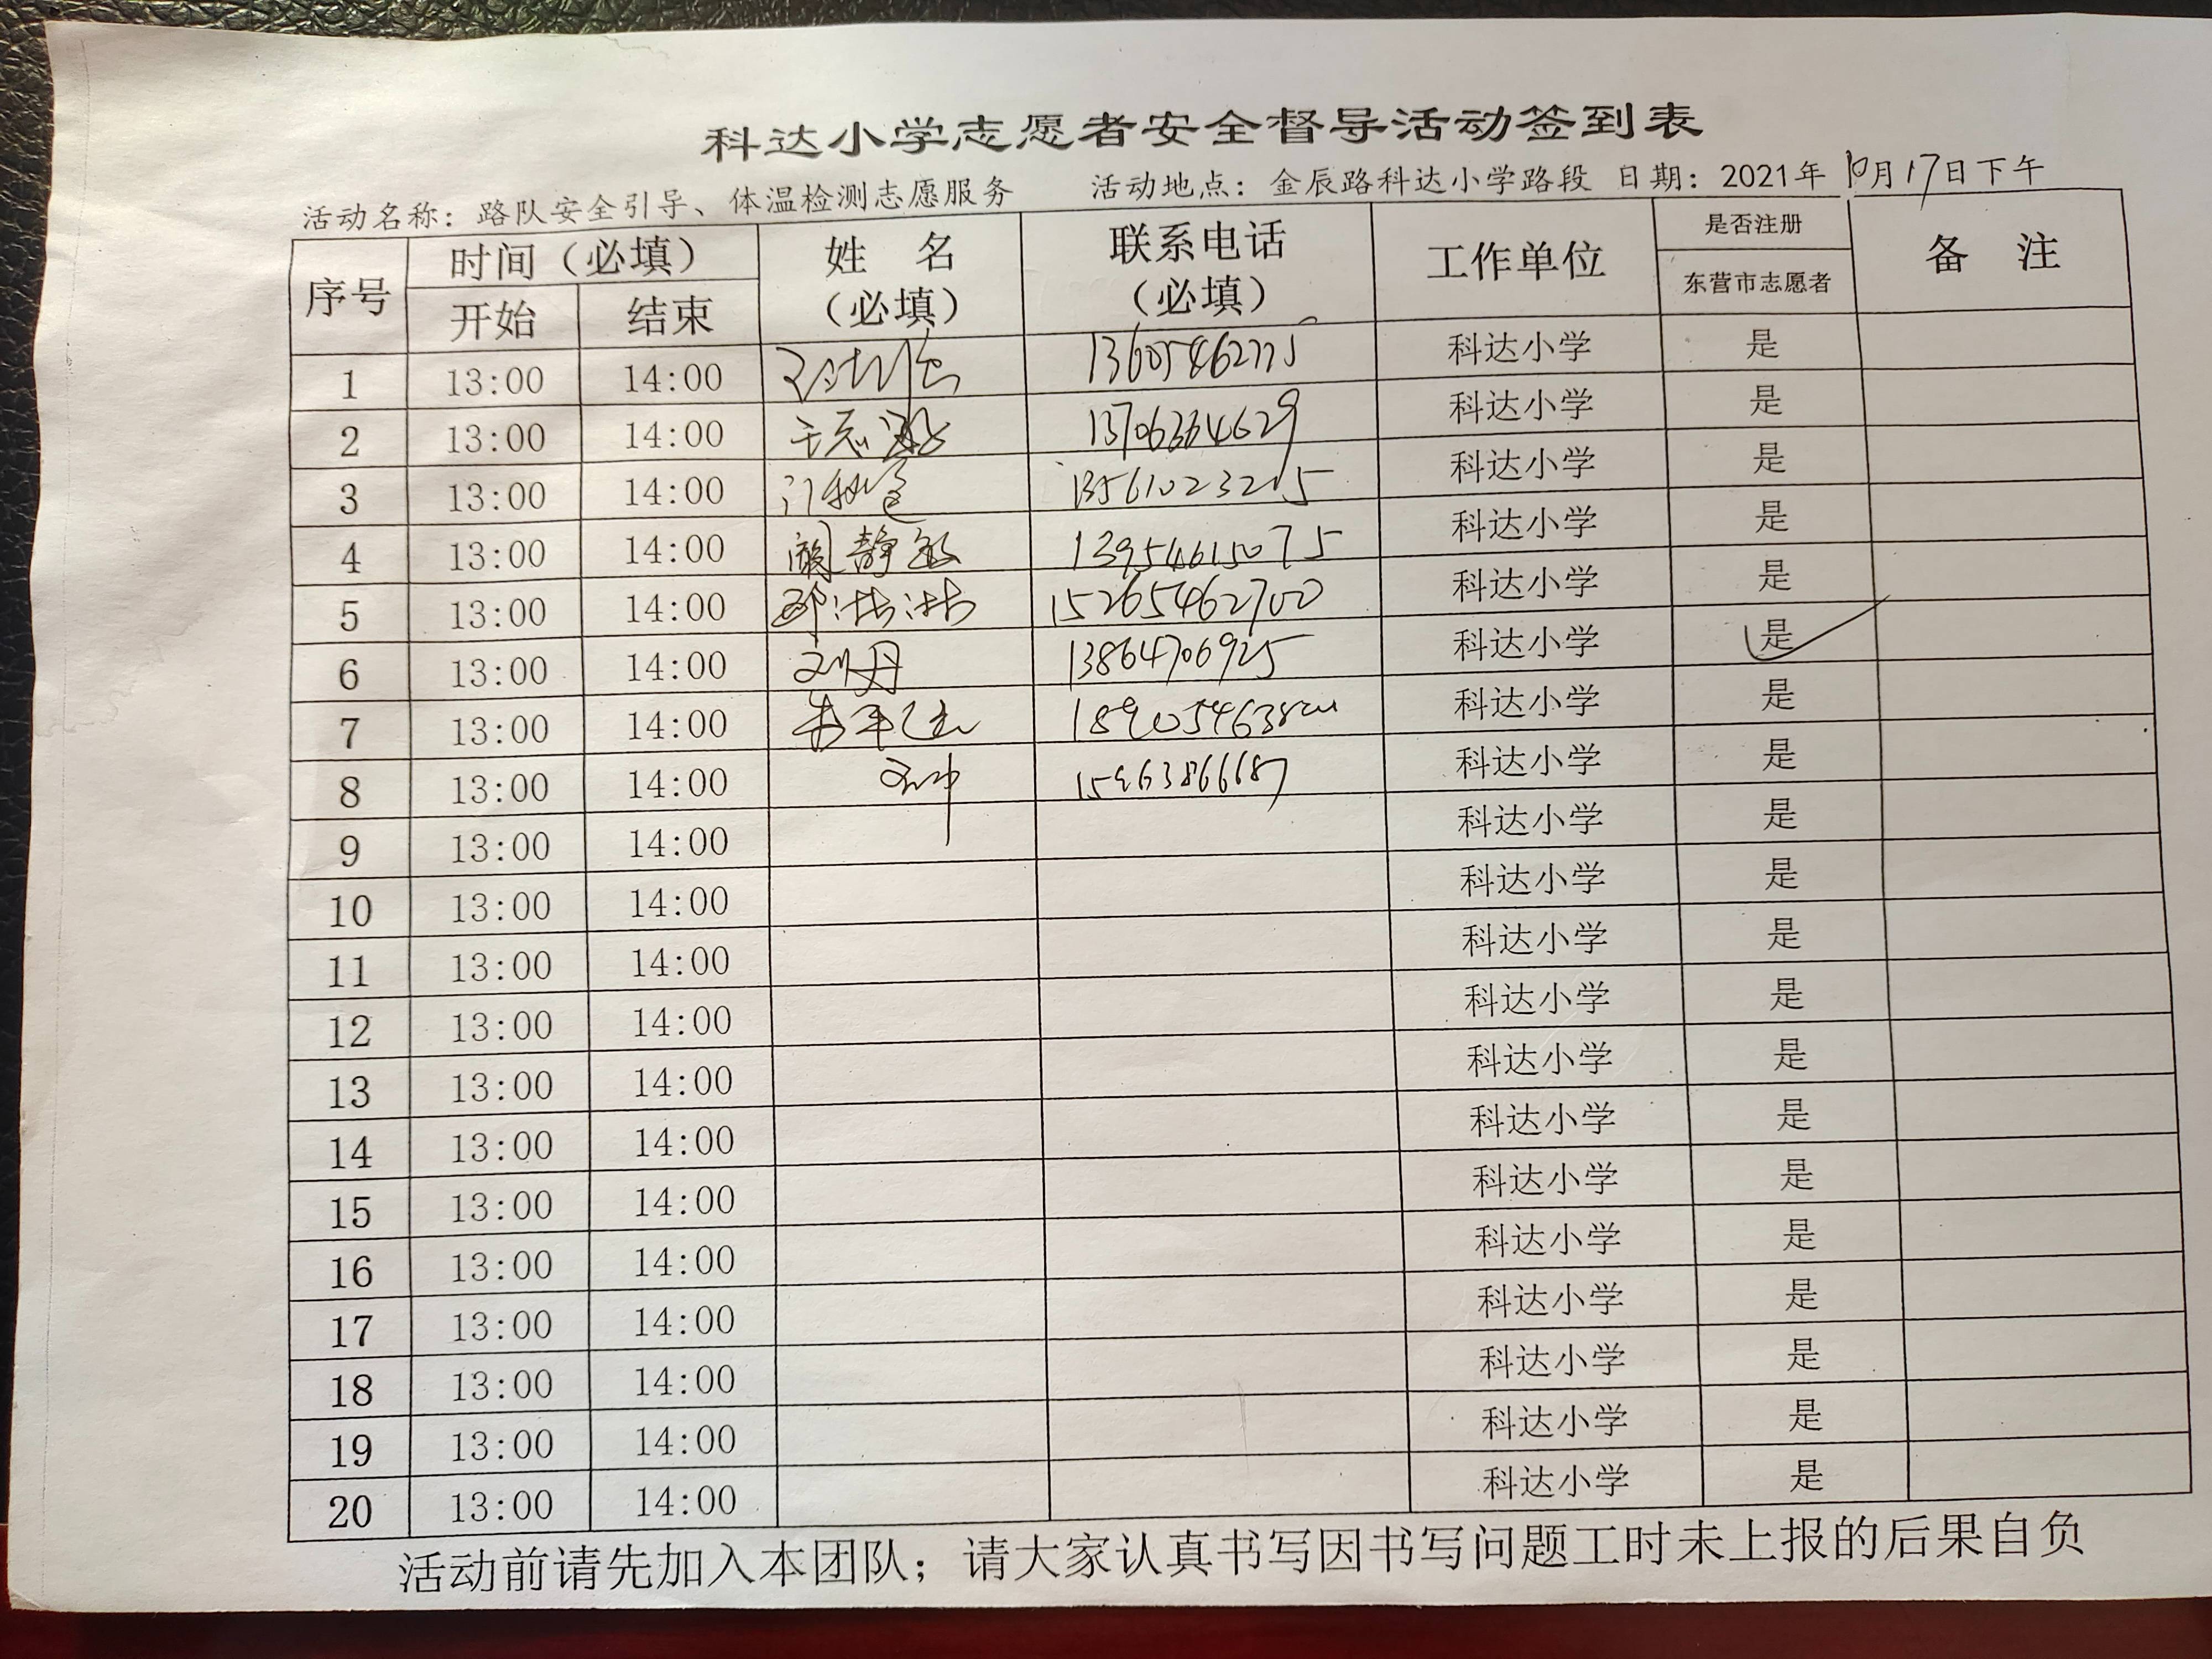 科达小学志愿者安全督导活动签到表
活动名称：路队安全引导、体温检测志愿服务 活动地点：金辰路科达小学路段 日期：2021年10月17日下午
序号 时间（必填） 姓 名（必填） 联系电话（必填） 工作单位 是否注册 备 注
开始 结束 东营市志愿者
1 13:00 14:00 科达小学 是
2 13:00 14:00 13706364629 科达小学 是
3 13:00 14:00 13561023215 科达小学 是
4 13:00 14:00 静敏 13954615075 科达小学 是
5 13:00 14:00 15265462700 科达小学 是
6 13:00 14:00 刘丹 13864706925 科达小学 是
7 13:00 14:00 科达小学 是
8 13:00 14:00 科达小学 是
9 13:00 14:00 科达小学 是
10 13:00 14:00 科达小学 是
11 13:00 14:00 科达小学 是
12 13:00 14:00 科达小学 是
13 13:00 14:00 科达小学 是
14 13:00 14:00 科达小学 是
15 13:00 14:00 科达小学 是
16 13:00 14:00 科达小学 是
17 13:00 14:00 科达小学 是
18 13:00 14:00 科达小学 是
19 13:00 14:00 科达小学 是
20 13:00 14:00 科达小学 是
活动前请先加入本团队；请大家认真书写因书写问题工时未上报的后果自负